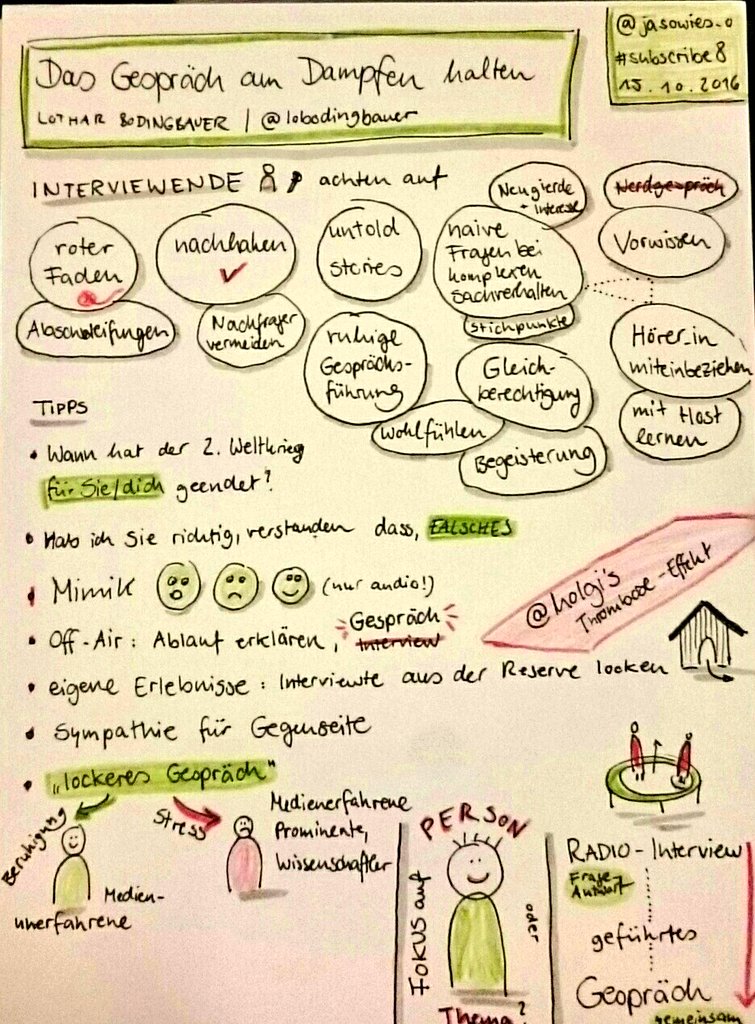 @jasowies_o
#subscribe8
15.10.2016
Das Gespräch am Dampfen halten
LOTHAR BODINGBAUER | @lobodingbauer
INTERVIEWENDE achten auf
roter
Faden
Abschweifungen
nachhaken
Nachfrager
vermeiden
untold
stories
ruhige
Gesprächs-
führung
Wohlfühlen
Neugierde
+ Interesse
naive
Fragen bei
komplexen
Sachverhalten
Stichpunkte
Gleich-
berechtigung
Begeisterung
Nerdgespräch
Vorwissen
Hörer_in
miteinbeziehen
mit Host
lernen
TIPPS
• Wann hat der 2. Weltkrieg
für Sie/dich geendet?
• Hab ich Sie richtig, verstanden dass, FALSCHES
• Mimik (nur audio!)
• Off-Air: Ablauf erklären, Interview
Gespräch
@holgi's
Thrombose-Effekt
• eigene Erlebnisse: Interviewte aus der Reserve locken
• Sympathie für Gegenseite
• „lockeres Gespräch"
Beruhigung
Medien-
unerfahrene
Stress
Medienerfahrene
Prominente,
Wissenschaftler
FOKUS auf
PERSON
oder
Thema?
RADIO-Interview
Frage-
Antwort
geführtes
Gespräch
gemeinsam